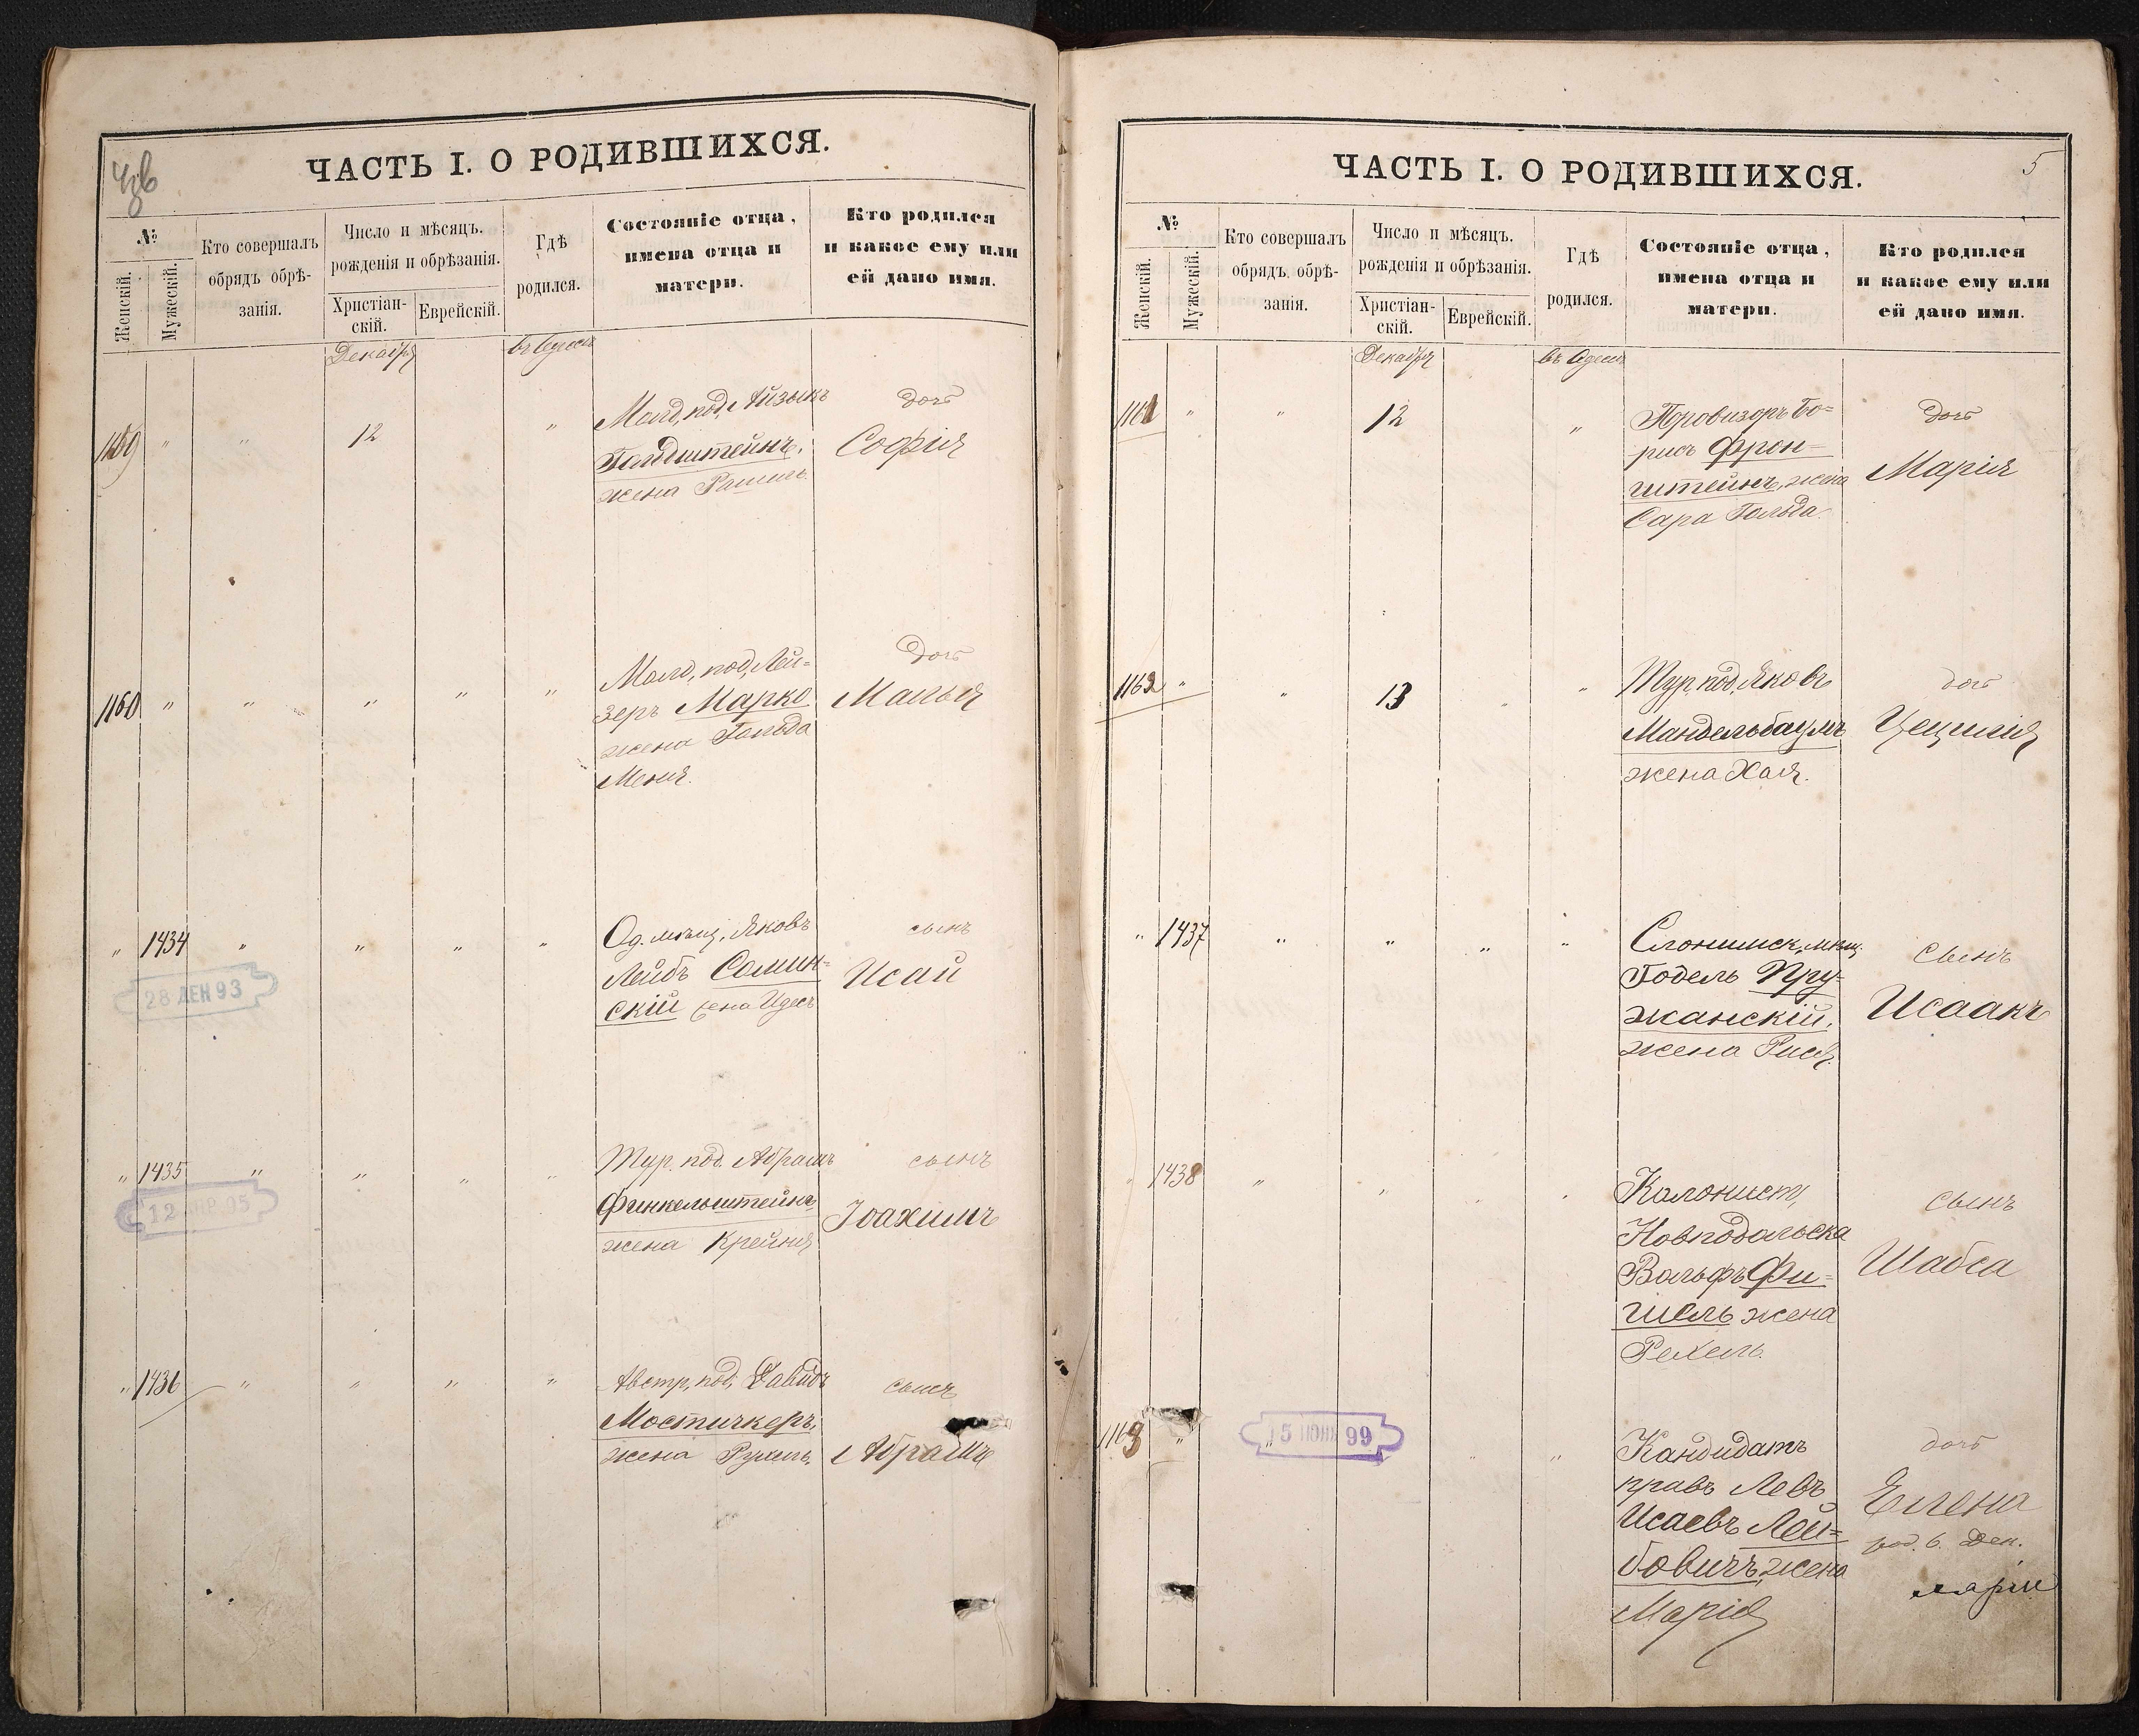 4зв
ЧАСТЬ I. О РОДИВШИХСЯ.
№
Женскій.
Мужескій.
Кто совершалъ
обрядъ обрѣ-
занія.
Число и мѣсяцъ.
рожденія и обрѣзанія.
Христіан-
скій.
Еврейскій.
Гдѣ
родился.
Состояніе отца,
имена отца и
матери.
Кто родился
и какое ему или
ей дано имя.
Декабря
въ Одессѣ
1159 " " 12 "
Молд. под. Айзыкъ
Гольдштейнъ,
жена Рашель
дочь
Софія
1160 " " " " "
Молд. под. Лей=
зеръ Марко
жена Гольда
Меня.
дочь
Манья
" 1434 " " " "
Од. мѣщ. Яковъ
Лейбъ Солин-
скій жена Идесъ
сынъ
Исай
28 ДЕК 93
" 1435 " " " "
Тур. под. Абрамъ
Финкельштейнъ
жена Крейня
сынъ
Іоахимъ
12 АПР 95
" 1436 " " " "
Австр. под. Давидъ
Мостичкеръ,
жена Рухель.
сынъ
Абрамъ
ЧАСТЬ I. О РОДИВШИХСЯ.
5
№
Женскій.
Мужескій.
Кто совершалъ
обрядъ обрѣ-
занія.
Число и мѣсяцъ.
рожденія и обрѣзанія.
Христіан-
скій.
Еврейскій.
Гдѣ
родился.
Состояніе отца,
имена отца и
матери.
Кто родился
и какое ему или
ей дано имя.
Декабря
въ Одессѣ
1161 " " 12 "
Провизоръ Бо=
рисъ Фрон=
штейнъ, жена
Сара Гольда
дочь
Марія
1162 " " 13 " "
Тур. под. Яковъ
Мандельбаумъ
жена Хая.
дочь
Цецилія
" 1437 " " " "
Слонимск. мѣщ.
Годель Пру-
жанскій,
жена Рися.
сынъ
Исаакъ
" 1438 " " " "
Колонист.
Новподольска
Вольфъ Фи=
шель жена
Рехель.
сынъ
Шабса
1163 " " " "
15 ІЮНЯ 99
Кандидатъ
правъ Левъ
Исаевъ Лей=
бовичъ, жена
Марія
дочь
Елена
род. 6. Дек.